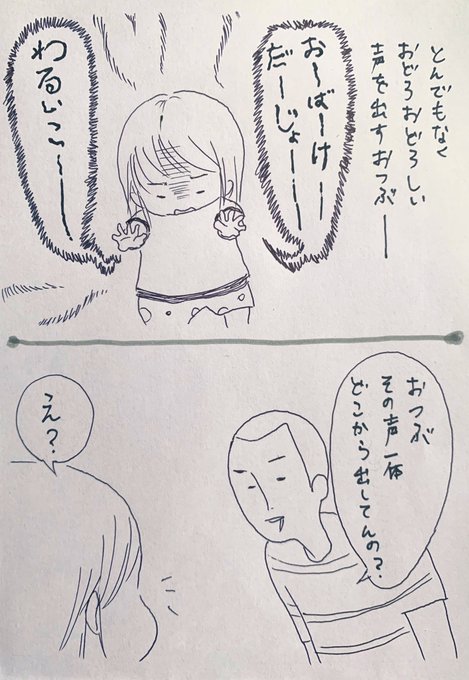 とんでもなく
おどろおどろしい
声を出すおつぶ——
お〜ば〜け〜
だ〜じょ〜——
わるいこ〜——
おつぶ
その声一体
どこから出してんの？
え？